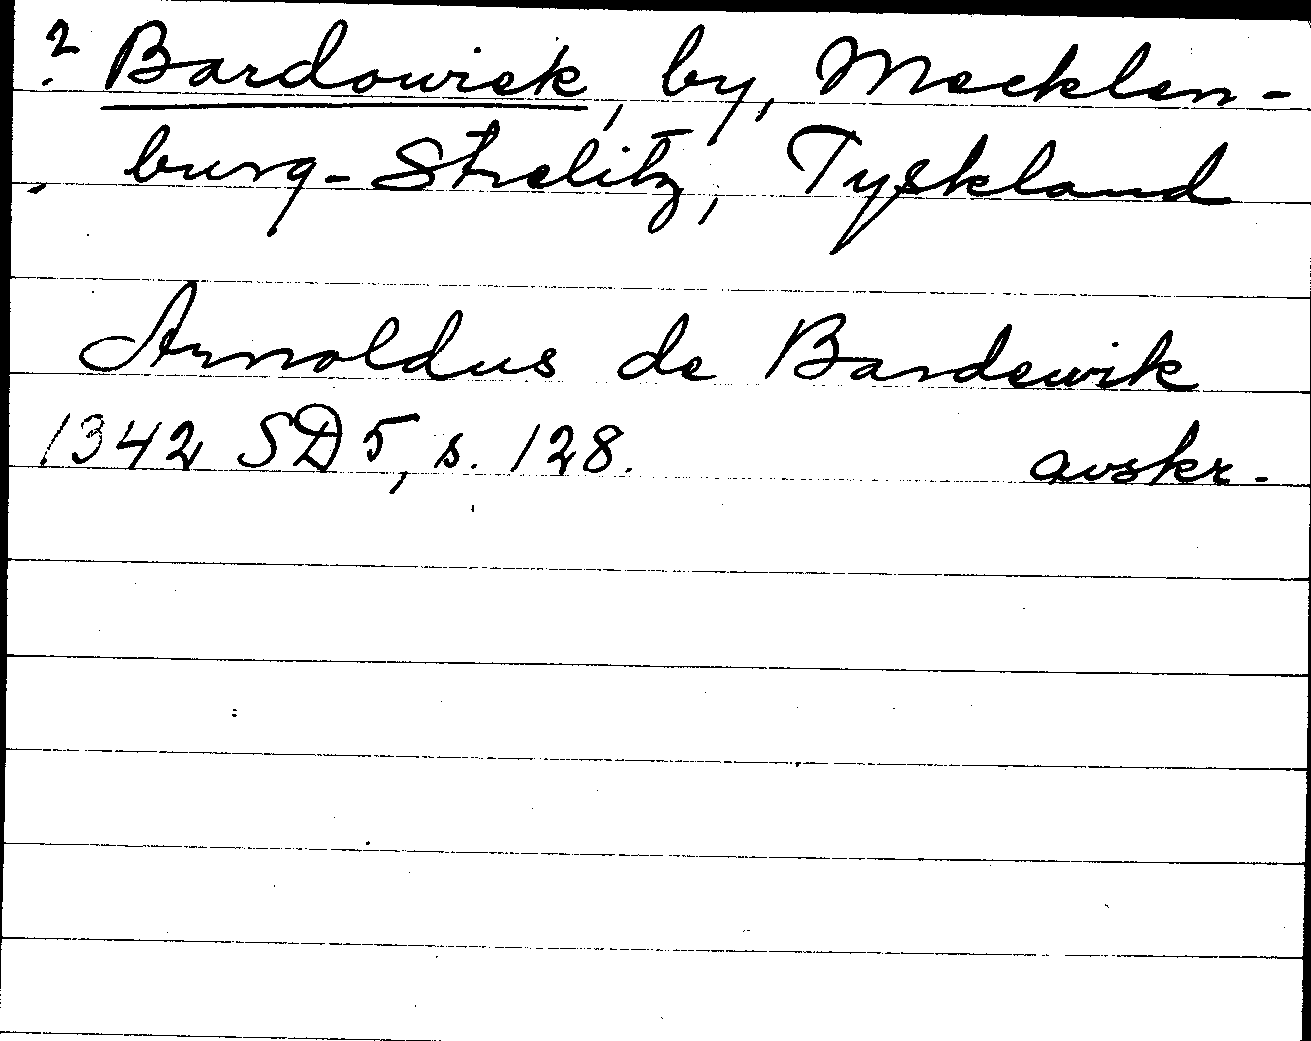 ? Bardowiek, by, Mecklen-
burg-Strelitz, Tyskland
Arnoldus de Bardewik
1342 SD 5, s. 128. avskr.